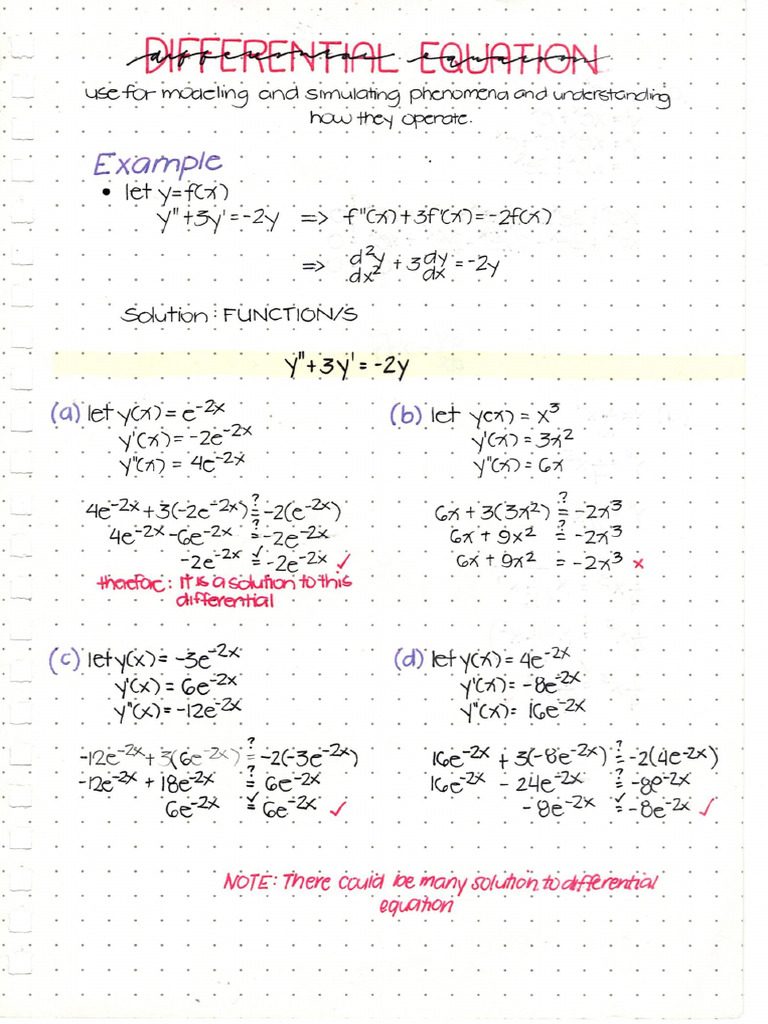 DIFFERENTIAL EQUATION
differential equation
use for modeling and simulating phenomena and understanding
how they operate.
Example
• let y=f(x)
y"+3y'=-2y => f"(x)+3f'(x)=-2f(x)
=> d²y/dx² + 3 dy/dx = -2y
Solution: FUNCTION/S
y"+3y'=-2y
(a) let y(x) = e^-2x
y'(x) = -2e^-2x
y"(x) = 4e^-2x
4e^-2x+3(-2e^-2x) ?= -2(e^-2x)
4e^-2x-6e^-2x ?= -2e^-2x
-2e^-2x ✓= -2e^-2x ✓
therefore: It is a solution to this
differential
(b) let y(x) = x³
y'(x) = 3x²
y"(x) = 6x
6x + 3(3x²) ?= -2x³
6x + 9x² ?= -2x³
6x + 9x² = -2x³ ×
(c) let y(x) = -3e^-2x
y'(x) = 6e^-2x
y"(x) = -12e^-2x
-12e^-2x+3(6e^-2x) ?= -2(-3e^-2x)
-12e^-2x + 18e^-2x ?= 6e^-2x
6e^-2x ✓= 6e^-2x ✓
(d) let y(x) = 4e^-2x
y'(x) = -8e^-2x
y"(x) = 16e^-2x
16e^-2x + 3(-8e^-2x) ?= -2(4e^-2x)
16e^-2x - 24e^-2x ?= -8e^-2x
-8e^-2x ✓= -8e^-2x ✓
NOTE: There could be many solution to differential
equation